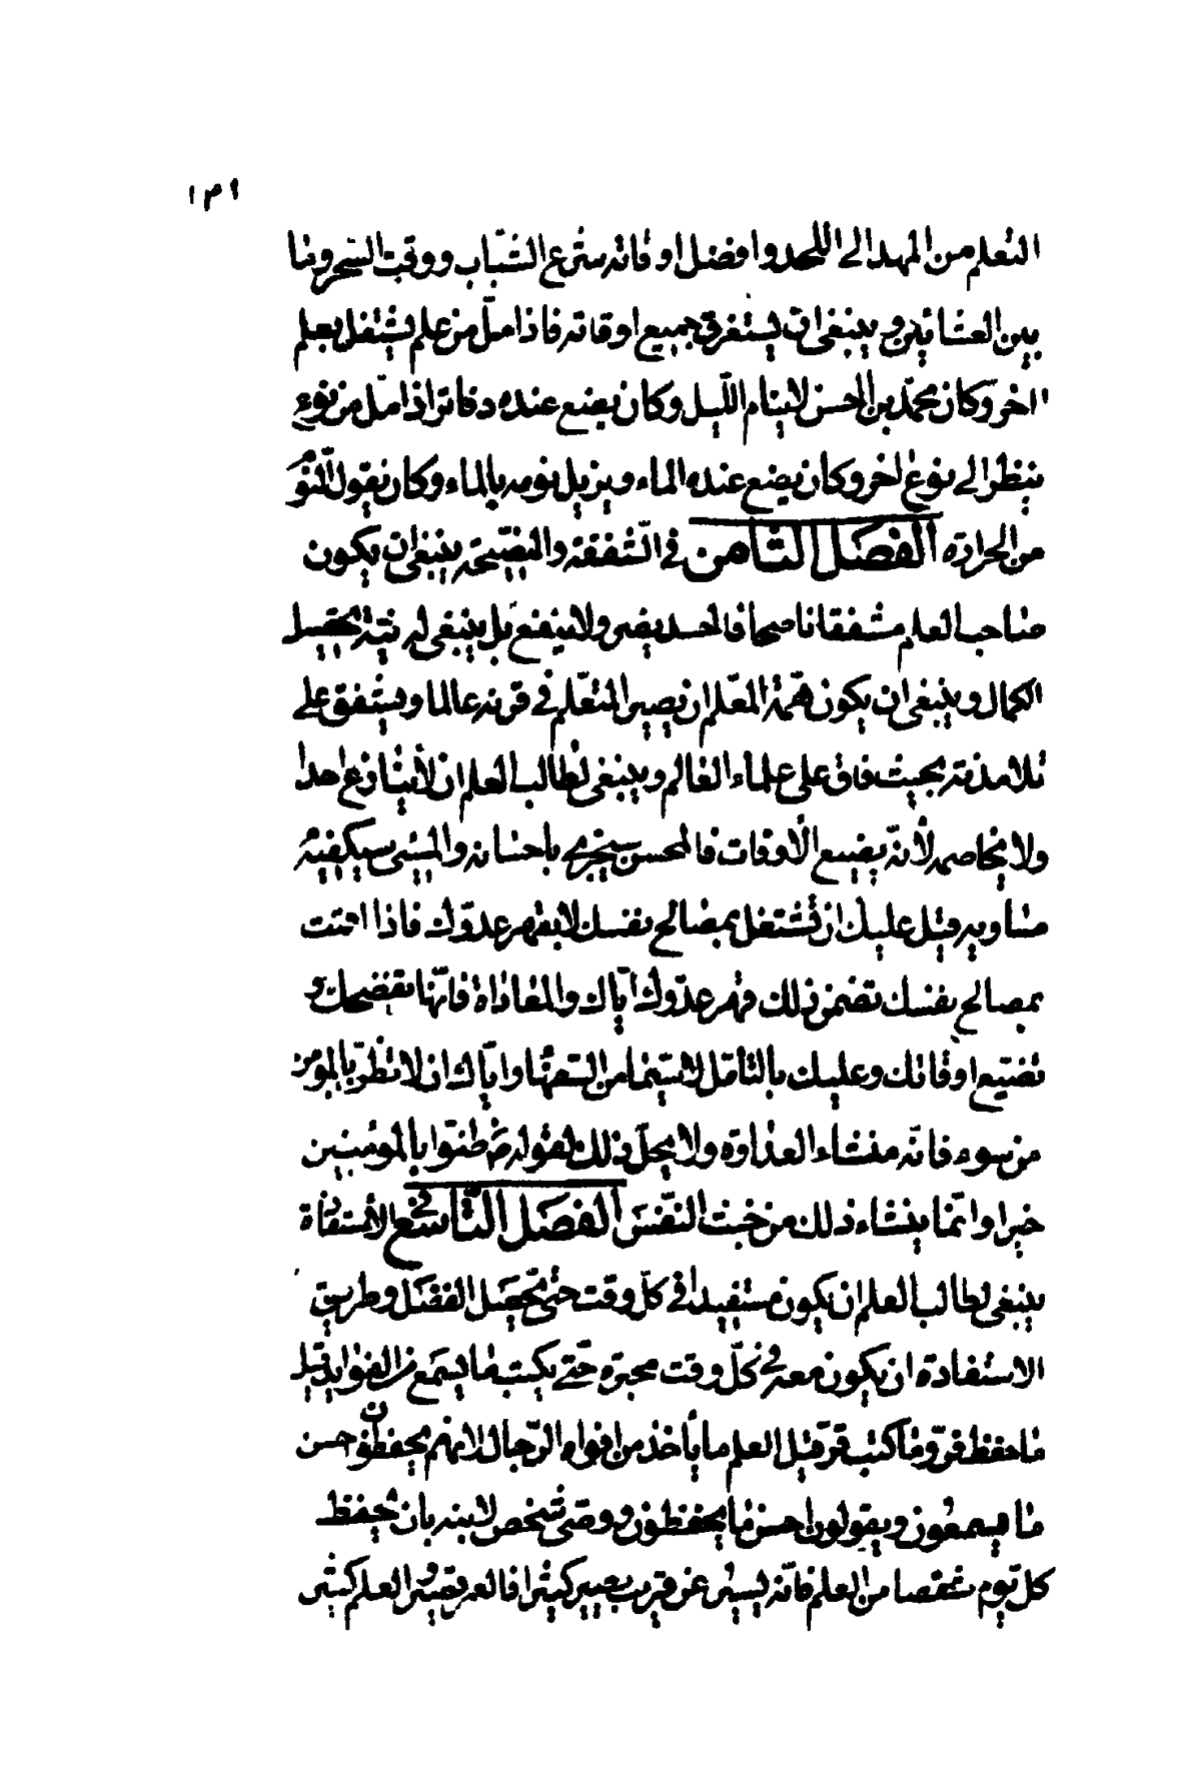 ١٣٩
التعلم من المهد الى اللحد وافضل اوقاته شرع الشباب ووقت السحر وما
بين العشائين وينبغي ان يستغرق جميع اوقاته فاذا ملّ من علم يشتغل بعلم
اخر وكان محمّد بن الحسن لا ينام الليل وكان يضع عنده دفاتر اذا ملّ من نوع
ينظر الى نوع اخر وكان يضع عنده الماء ويزيل نومه بالماء وكان يقول النّوم
من الحرارة الفصل الثامن في الشّفقة والنصيحة ينبغي ان يكون
صاحب العلم مشفقا ناصحا فالحسد يضر ولا ينفع بل ينبغي له نية تحصيل
الكمال وينبغي ان يكون همّة المعلّم ان يصير المتعلّم في قرنه عالما ويشفق على
تلامذته بحيث فاق على علماء العالم وينبغي لطالب العلم ان لا ينازع احدا
ولا يخاصمه لأنّه يضيع الأوقات فالمحسن سيجزى باحسانه والمسيئ سيكفيه
مساويه قيل عليك ان تشتغل بمصالح نفسك لا بقهر عدوّك فاذا اتمت
بمصالح نفسك تضمن ذلك قهر عدوّك ايّاك والمعاداة فانّها تفضحك و
تضيّع اوقاتك وعليك بالتأمل لا سيّما من السفهاء وايّاك ان لا تظن بالمؤمن
من سوء فانّه منشاء العداوة ولا يحلّ ذلك لقوله ص ظنّوا بالمؤمنين
خيرا وانّما ينشاء ذلك من خبث النّفس الفصل التّاسع في الأستفادة
ينبغي لطالب العلم ان يكون مستفيدا في كلّ وقت حتى يحصل الفضل وطريق
الاستفادة ان يكون معه في كلّ وقت محبرة حتى يكتب ما يسمع من الفوايد قيل
ما حفظ فرّ وما كتب قرّ قيل العلم ما يأخذ من افواه الرّجال لانهم يحفظون حسن
ما يسمعون ويقولون احسن ما يحفظون ووصّى شخص لابنه بان يحفظ
كل يوم شقصا من العلم فانّه يسير عن قريب يصير كثيرا فالعمر قصير والعلم كثير